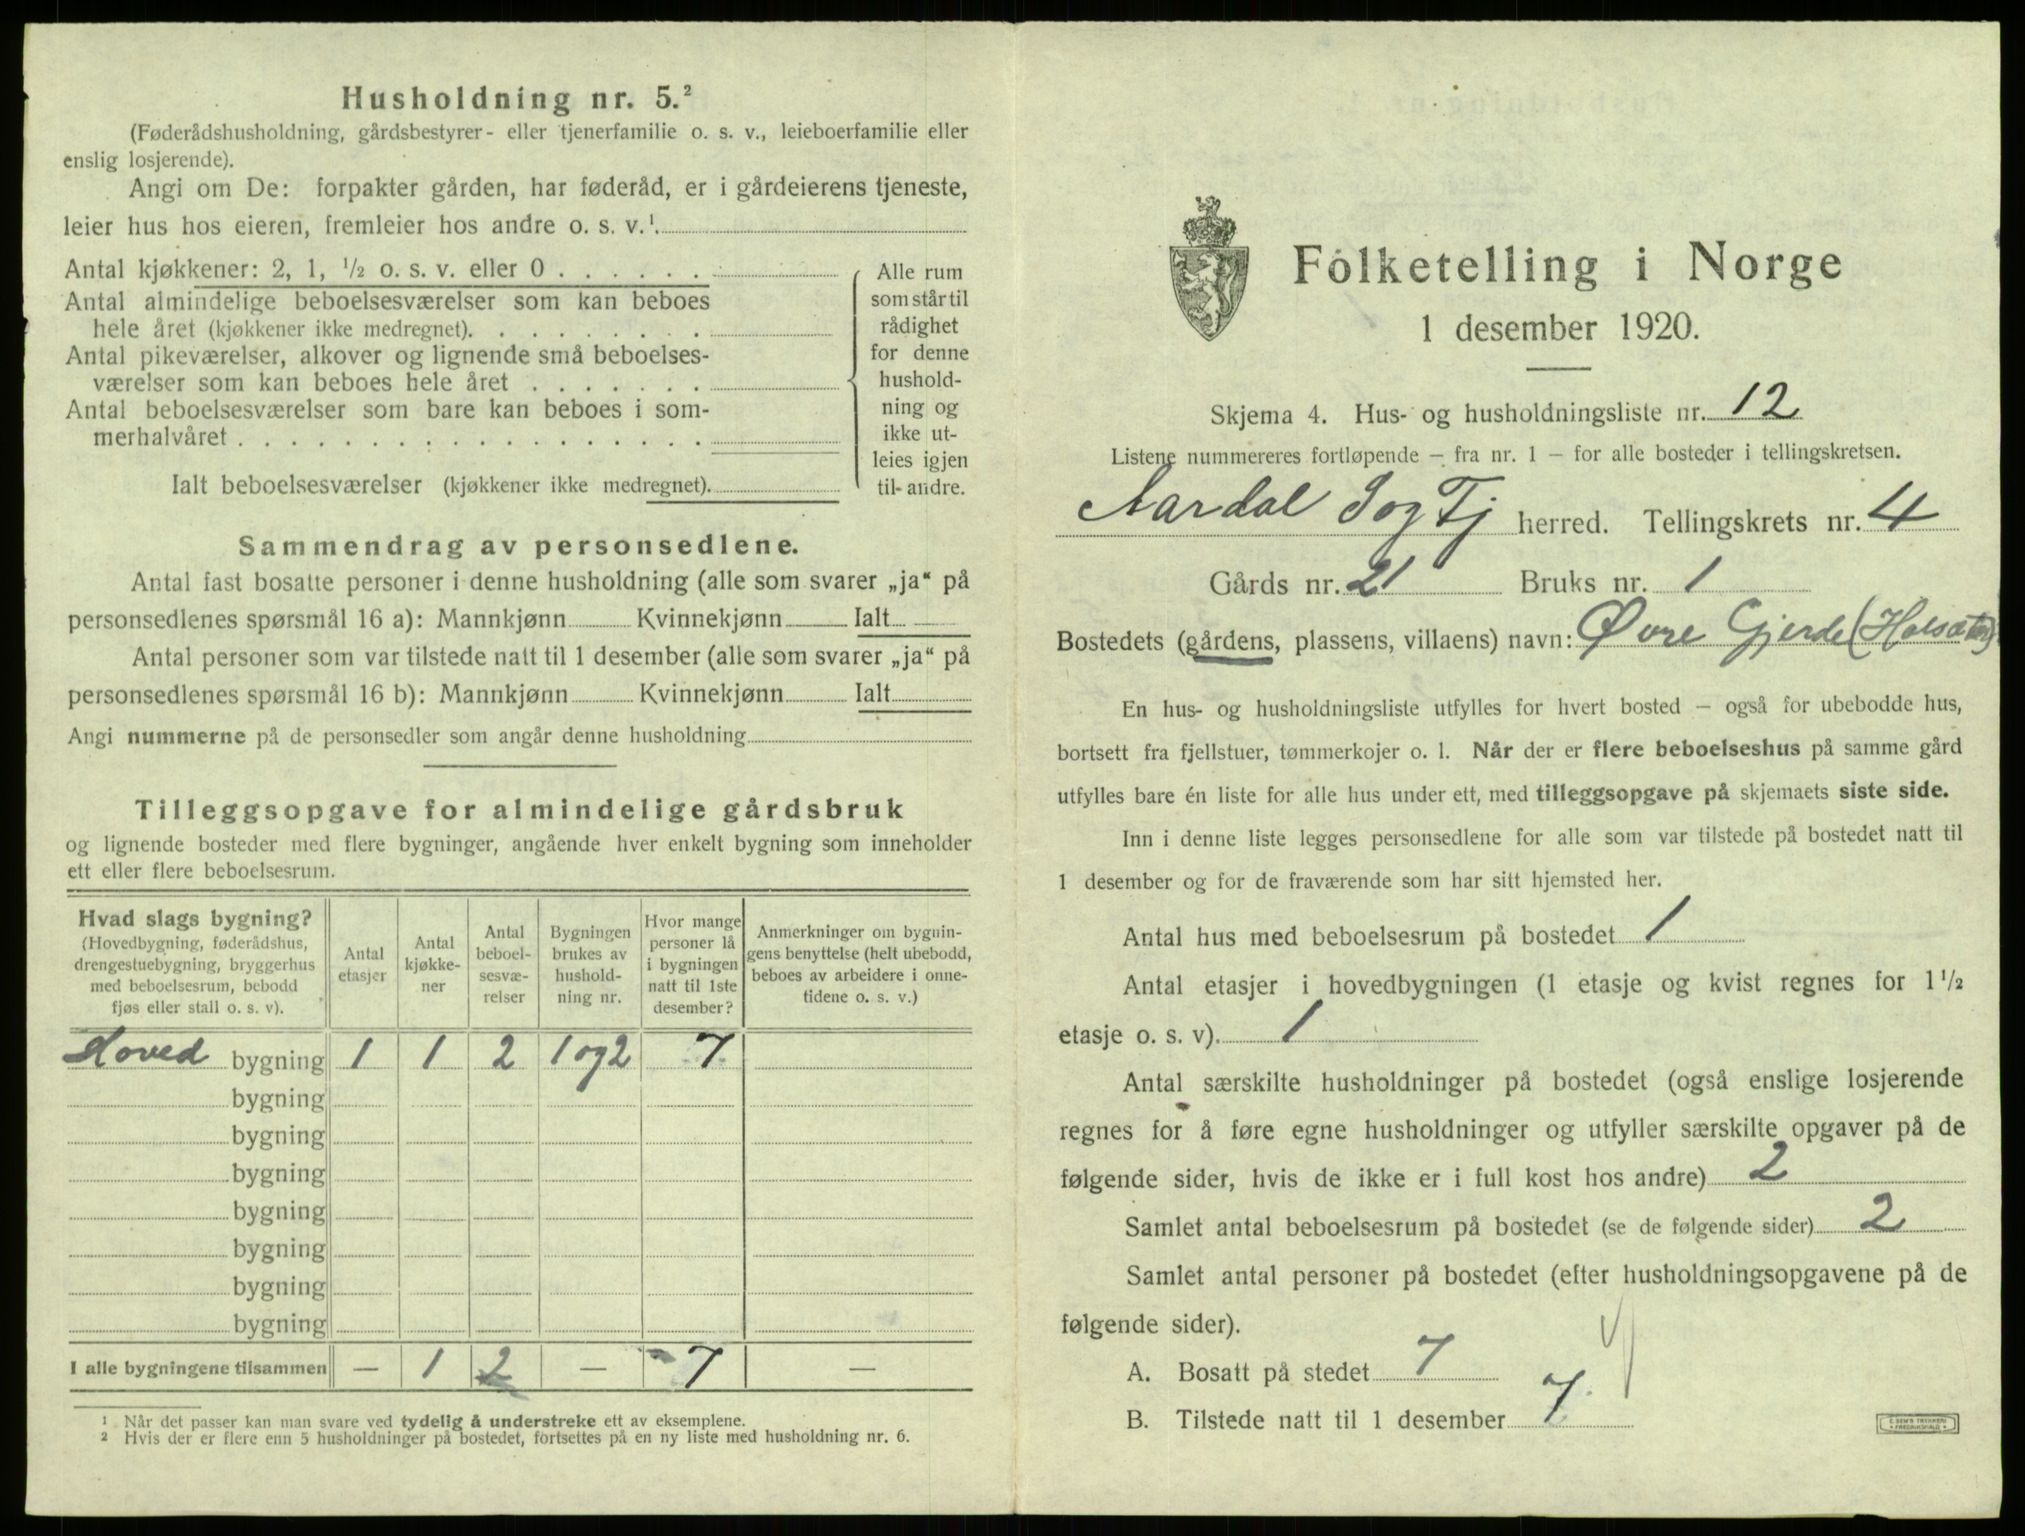 Husholdning nr. 5.²
(Føderådshusholdning, gårdsbestyrer- eller tjenerfamilie o. s. v., leieboerfamilie eller
enslig losjerende).
Angi om De: forpakter gården, har føderåd, er i gårdeierens tjeneste,
leier hus hos eieren, fremleier hos andre o. s. v.¹
Antal kjøkkener: 2, 1, ½ o. s. v. eller 0
Antal almindelige beboelsesværelser som kan beboes
hele året (kjøkkener ikke medregnet).
Antal pikeværelser, alkover og lignende små beboelses-
værelser som kan beboes hele året
Antal beboelsesværelser som bare kan beboes i som-
merhalvåret
Ialt beboelsesværelser (kjøkkener ikke medregnet).
Alle rum
som står til
rådighet
for denne
hushold-
ning og
ikke ut-
leies igjen
til andre.
Sammendrag av personsedlene.
Antal fast bosatte personer i denne husholdning (alle som svarer „ja“ på
personsedlenes spørsmål 16 a): Mannkjønn Kvinnekjønn Ialt
Antal personer som var tilstede natt til 1 desember (alle som svarer „ja“ på
personsedlenes spørsmål 16 b): Mannkjønn Kvinnekjønn Ialt
Angi nummerne på de personsedler som angår denne husholdning
Tilleggsopgave for almindelige gårdsbruk
og lignende bosteder med flere bygninger, angående hver enkelt bygning som inneholder
ett eller flere beboelsesrum.
Hvad slags bygning?
(Hovedbygning, føderådshus,
drengestuebygning, bryggerhus
med beboelsesrum, bebodd
fjøs eller stall o. s. v).
Antal
etasjer
Antal
kjøkke-
ner
Antal
beboel-
sesvæ-
relser
Bygningen
brukes av
hushold-
ning nr.
Hvor mange
personer lå
i bygningen
natt til 1ste
desember?
Anmerkninger om bygnin-
gens benyttelse (helt ubebodd,
beboes av arbeidere i onne-
tidene o. s. v.)
Hoved bygning 1 1 2 1 og 2 7
bygning
bygning
bygning
bygning
bygning
bygning
bygning
I alle bygningene tilsammen — 1 2 — 7 —
¹ Når det passer kan man svare ved tydelig å understreke ett av eksemplene.
² Hvis der er flere enn 5 husholdninger på bostedet, fortsettes på en ny liste med husholdning nr. 6.
Folketelling i Norge
1 desember 1920.
Skjema 4. Hus- og husholdningsliste nr. 12
Listene nummereres fortløpende – fra nr. 1 – for alle bosteder i tellingskretsen.
Aardal Sogn Fj herred. Tellingskrets nr. 4
Gårds nr. 21 Bruks nr. 1
Bostedets (gårdens, plassens, villaens) navn: Øvre Gjerde (Holsæter)
En hus- og husholdningsliste utfylles for hvert bosted – også for ubebodde hus,
bortsett fra fjellstuer, tømmerkojer o. l. Når der er flere beboelseshus på samme gård
utfylles bare én liste for alle hus under ett, med tilleggsopgave på skjemaets siste side.
Inn i denne liste legges personsedlene for alle som var tilstede på bostedet natt til
1 desember og for de fraværende som har sitt hjemsted her.
Antal hus med beboelsesrum på bostedet 1
Antal etasjer i hovedbygningen (1 etasje og kvist regnes for 1½
etasje o. s. v). 1
Antal særskilte husholdninger på bostedet (også enslige losjerende
regnes for å føre egne husholdninger og utfyller særskilte opgaver på de
følgende sider, hvis de ikke er i full kost hos andre) 2
Samlet antal beboelsesrum på bostedet (se de følgende sider) 2
Samlet antal personer på bostedet (efter husholdningsopgavene på de
følgende sider).
A. Bosatt på stedet 7
B. Tilstede natt til 1 desember 7